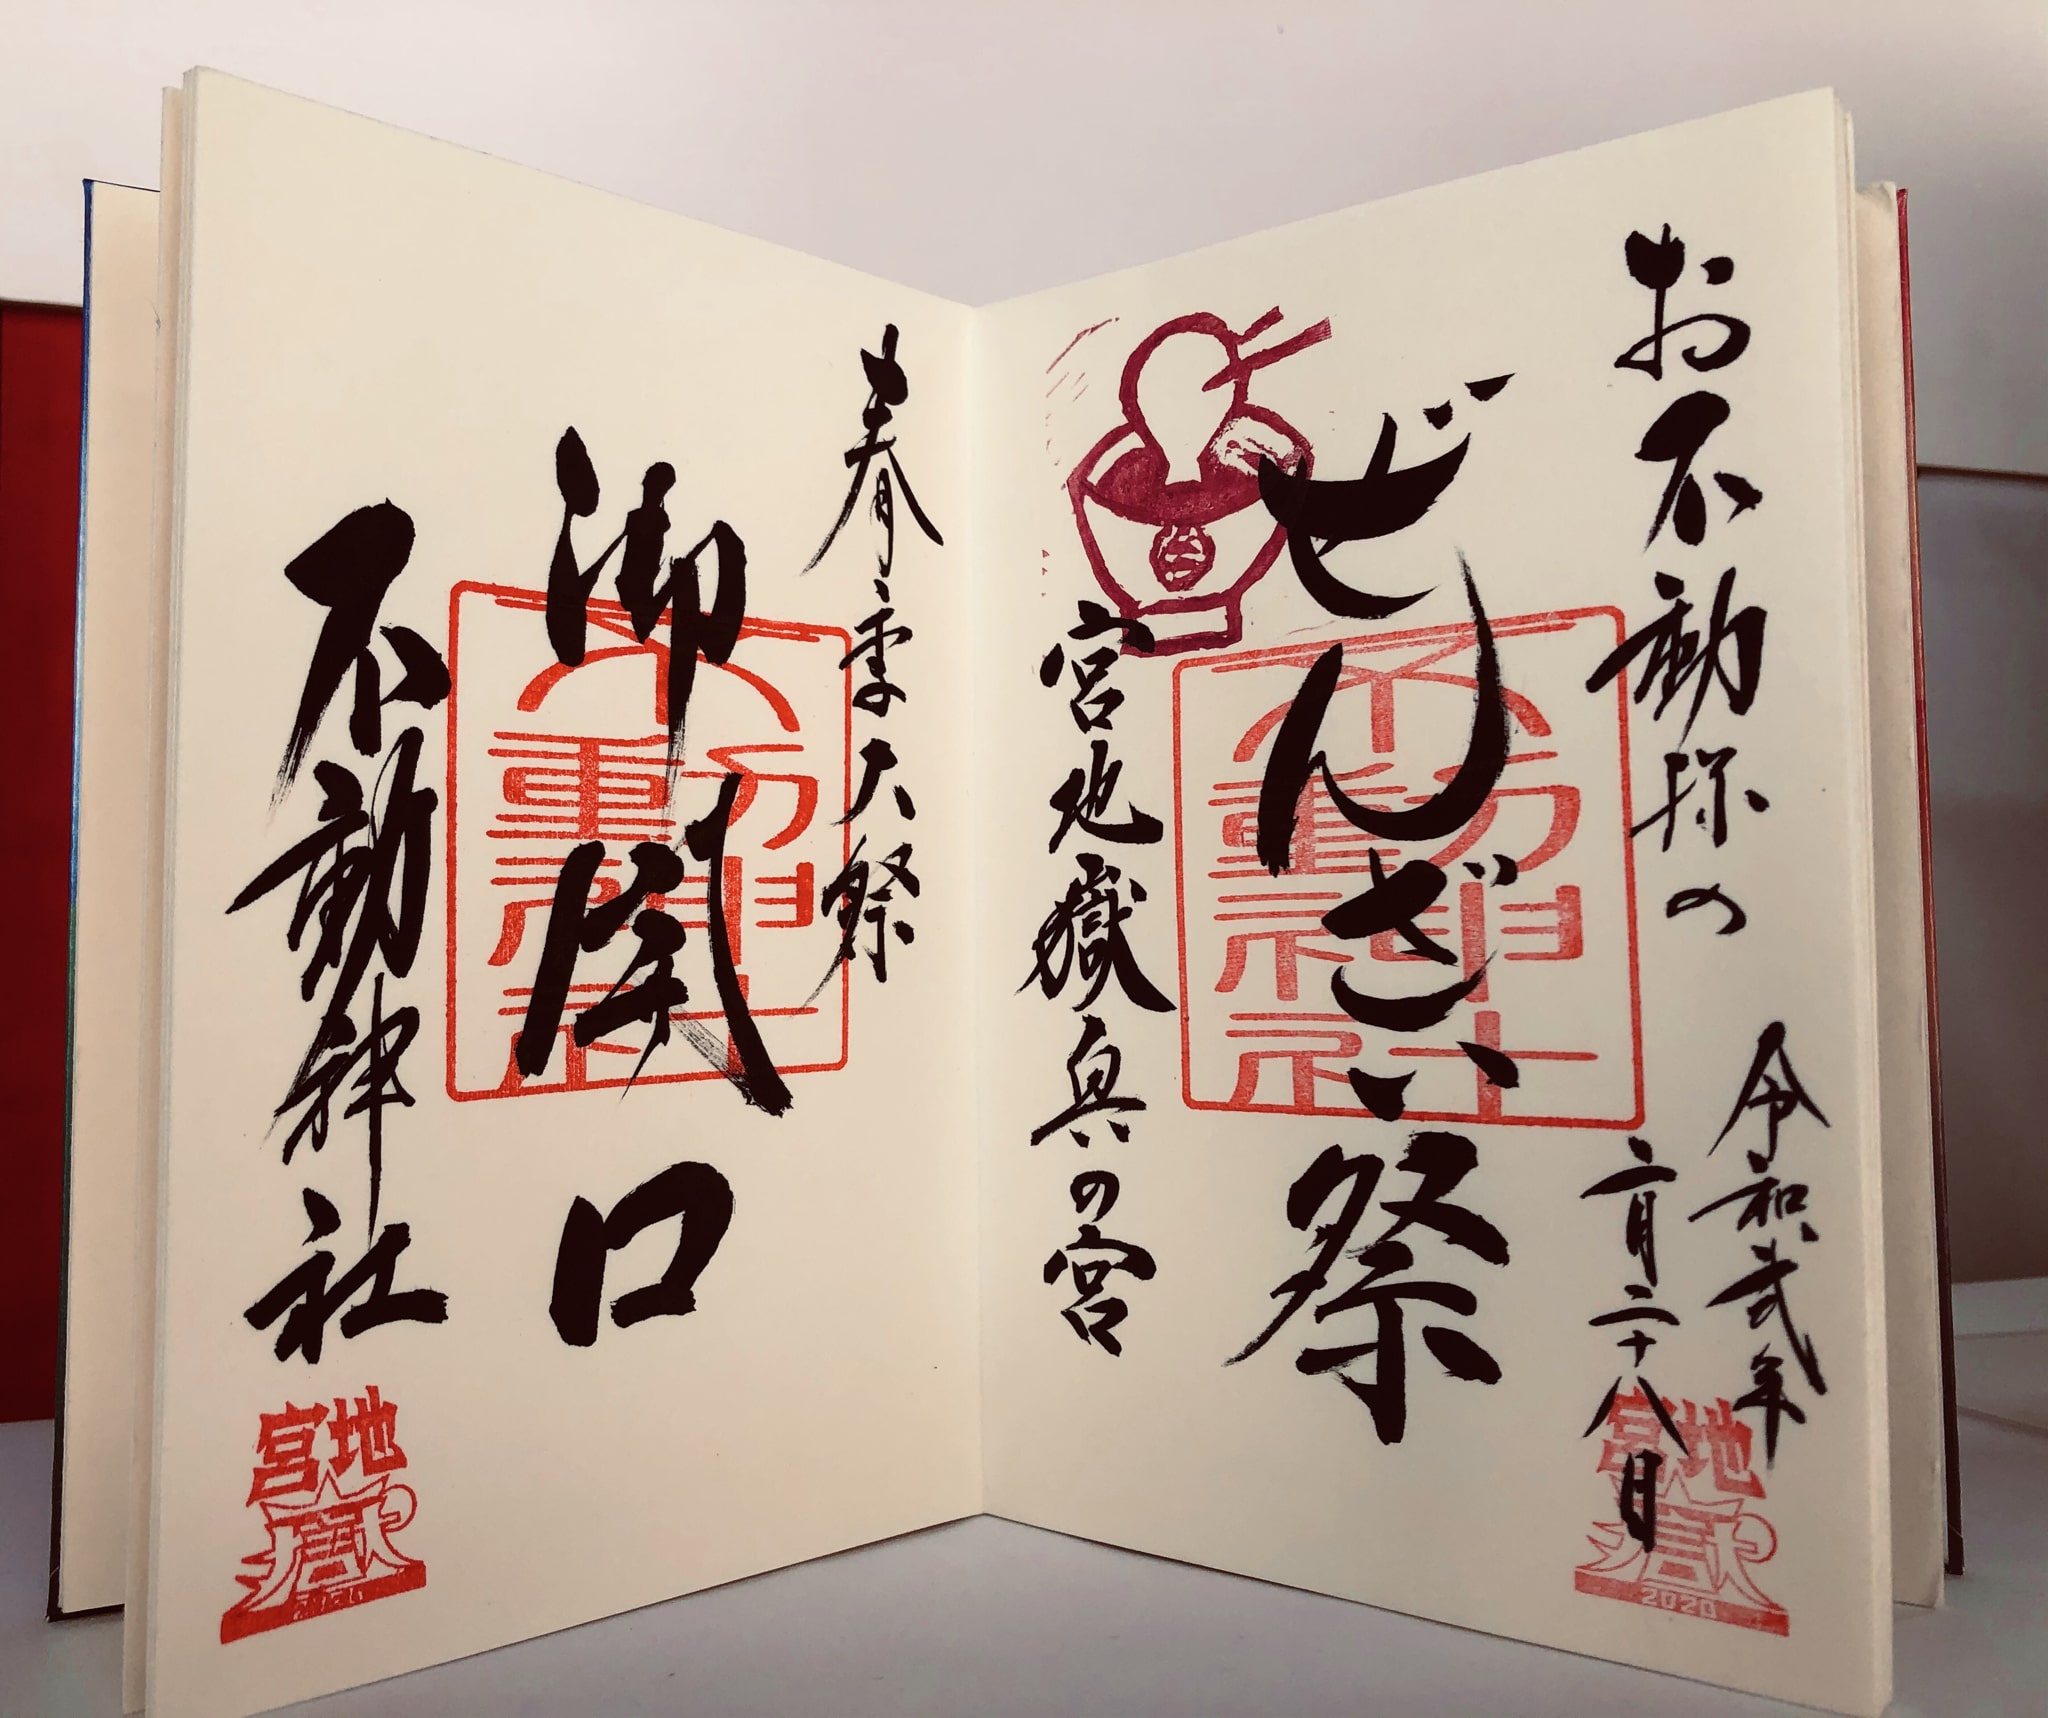 お不動様の
令和弐年
二月二十八日
ぜんざい祭
宮地嶽奥の宮
不動神社
宮地嶽
2020
春季大祭
御開口
不動神社
不動神社
宮地嶽